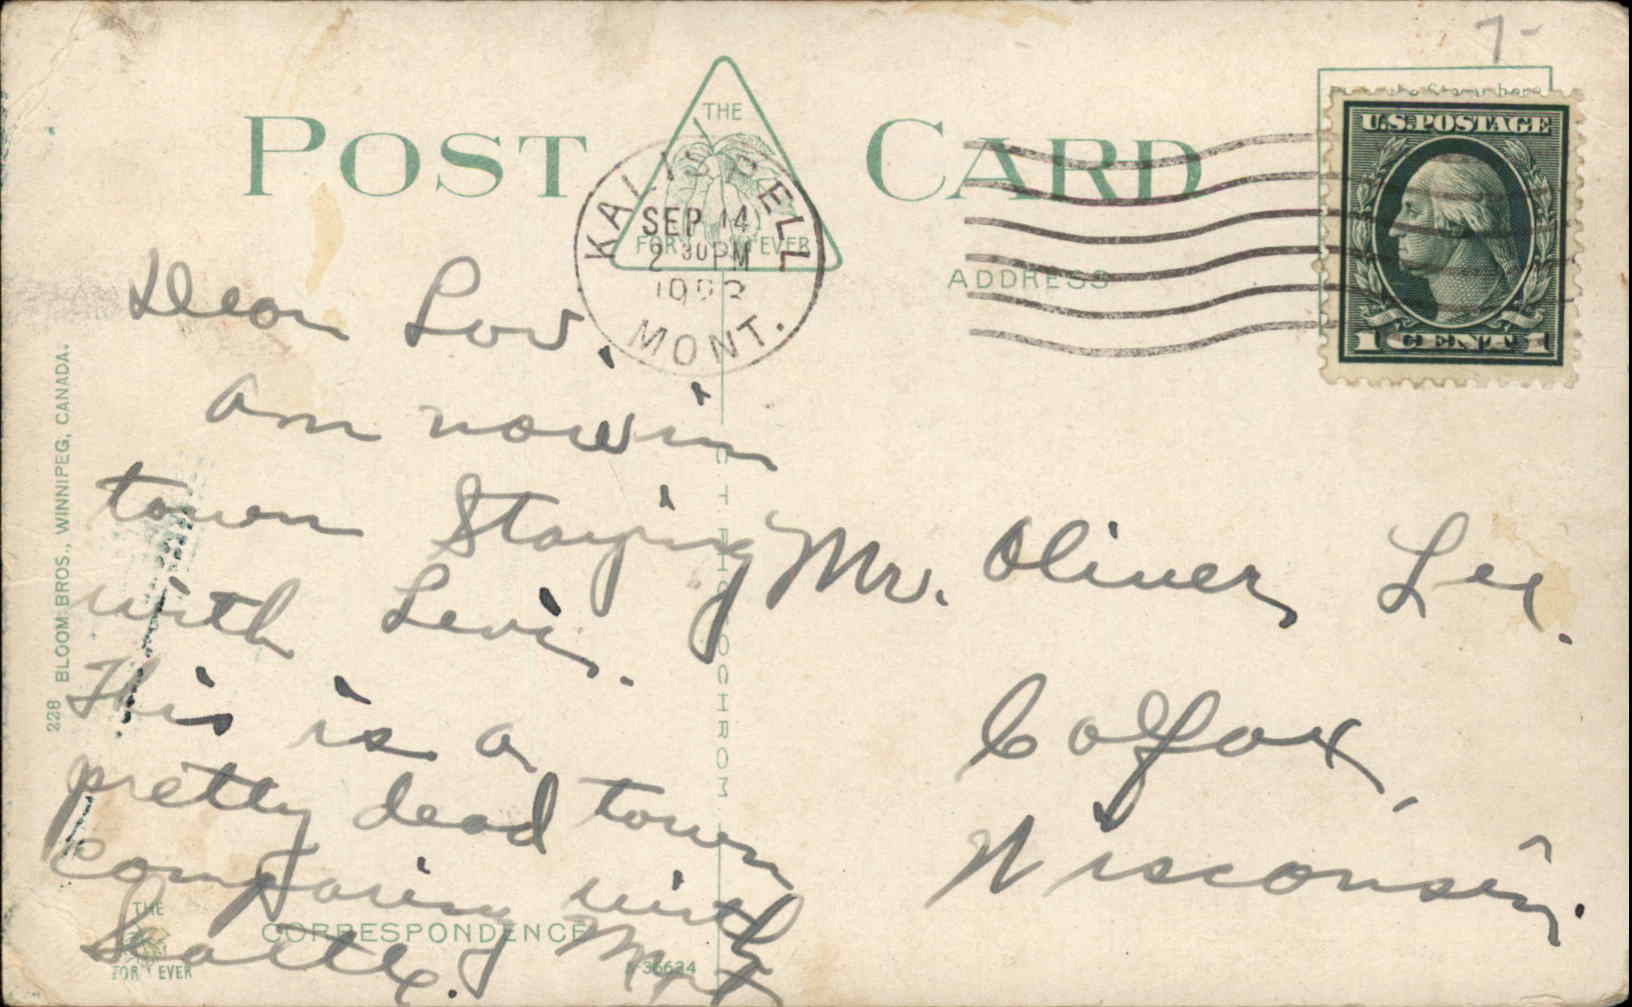 7-
POST CARD
THE
FOR EVER
KALISPELL
SEP 14
2 30 PM
MONT.
U.S. POSTAGE
1 CENT 1
ADDRESS
Dear
am now in
town Staying
with Levis.
This is a
pretty dead town
comparing with
Seattle.
Mr. Oliver Lee.
Colfax,
Wisconsin.
228 BLOOM BROS., WINNIPEG, CANADA.
OCHROM
CORRESPONDENCE
THE
FOR EVER
36624